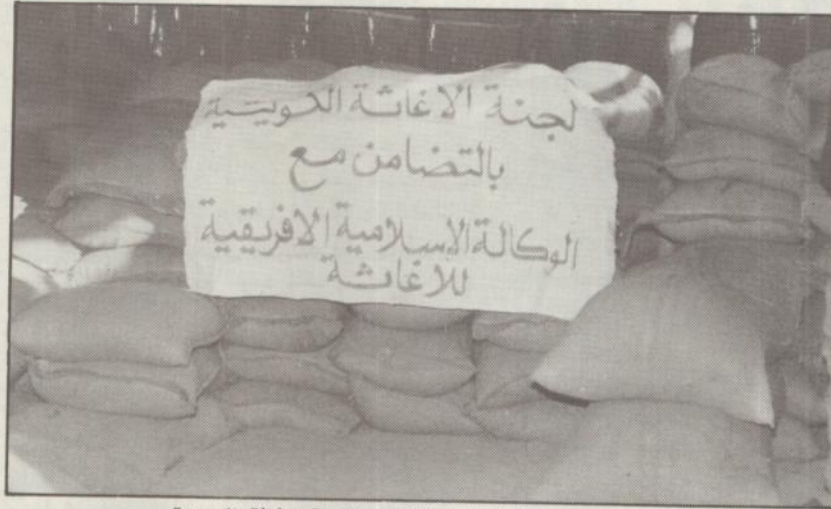 لجنة الاغاثة الكويتية
بالتضامن مع
الوكالة الاسلامية الافريقية
للاغاثة